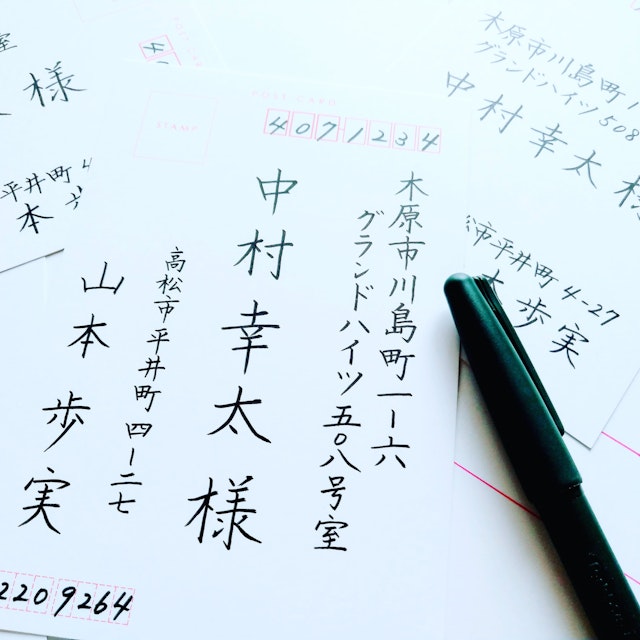 POST CARD
STAMP
4071234
木原市川島町一ー六
グランドハイツ五〇八号室
中村幸太様
高松市平井町四ー二七
山本歩実
2209264
木原市川島町1
グランドハイツ508
中村幸太様
市平井町4-27
歩実
様
平井町4
本